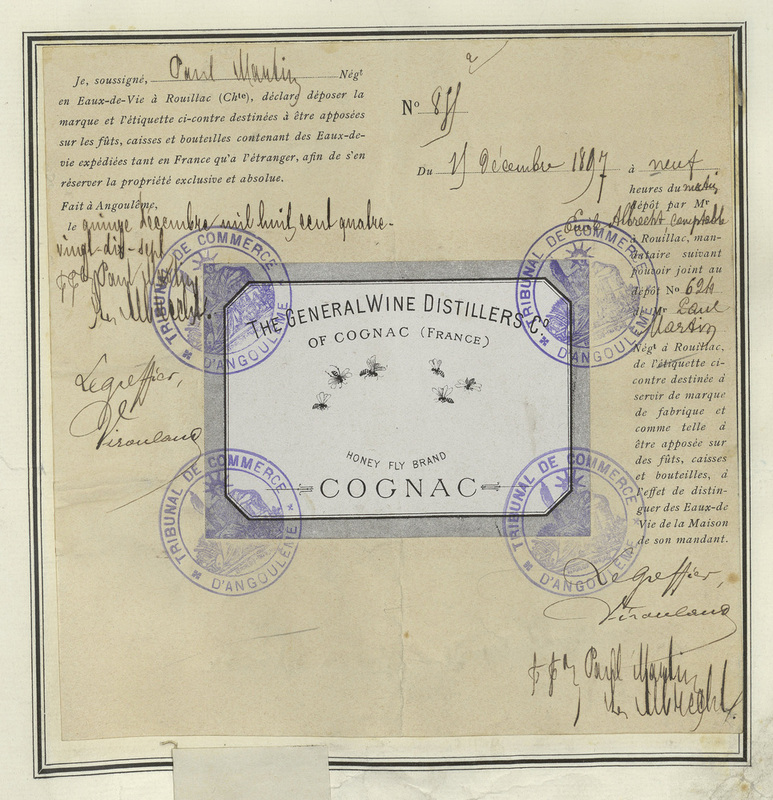 Je, soussigné, Paul Martin Négt
en Eaux-de-Vie à Rouillac (Chte), déclare déposer la
marque et l'étiquette ci-contre destinées à être apposées
sur les fûts, caisses et bouteilles contenant des Eaux-de-
vie expédiées tant en France qu'a l'étranger, afin de s'en
réserver la propriété exclusive et absolue.
Fait à Angoulême,
le quinze décembre mil huit cent quatre-
vingt-dix-sept
Paul Martin
Albrecht.
Le greffier,
No
Du 15 Décembre 1897 à neuf
heures du matin
dépôt par Mr
Albrecht, comptable
à Rouillac, man-
dataire suivant
pouvoir joint au
dépôt No 624
de Mr Paul
Martin
Négt à Rouillac,
de l'étiquette ci-
contre destinée à
servir de marque
de fabrique et
comme telle à
être apposée sur
des fûts, caisses
et bouteilles, à
l'effet de distin-
guer des Eaux-de
Vie de la Maison
de son mandant.
Le Greffier,
Paul Martin
Albrecht.
THE GENERAL WINE DISTILLERS Co
OF COGNAC (FRANCE)
HONEY FLY BRAND
COGNAC
TRIBUNAL DE COMMERCE
D'ANGOULÊME
TRIBUNAL DE COMMERCE
D'ANGOULÊME
TRIBUNAL DE COMMERCE
D'ANGOULÊME
TRIBUNAL DE COMMERCE
D'ANGOULÊME